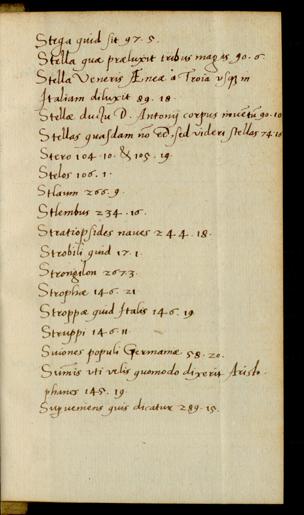 Stega quid sit 97. 5.
Stella quæ præluxit tribus magis 90. 6.
Stella Veneris Æneæ à Troia usque in
Italiam diluxit 89. 18.
Stellæ ductu D. Antonij corpus inventũ 90. 10
Stellas quasdam nõ sed videri stellas 74. 16
Stero 104. 10. & 105. 19.
Stelos 106. 1.
Stlaum 266. 9.
Stlembus 234. 16.
Stratiopsides naues 244. 18.
Strobili quid 17. 1.
Strongilon 267 3.
Strophæ 146. 21
Stroppæ quid Italis 146. 19
Struppi 146. 11.
Suiones populi Germaniæ 58. 20.
Sumis vti velis quomodo dixerit Aristo-
phanes 145. 19.
Supueniens quis dicatur 289. 15.